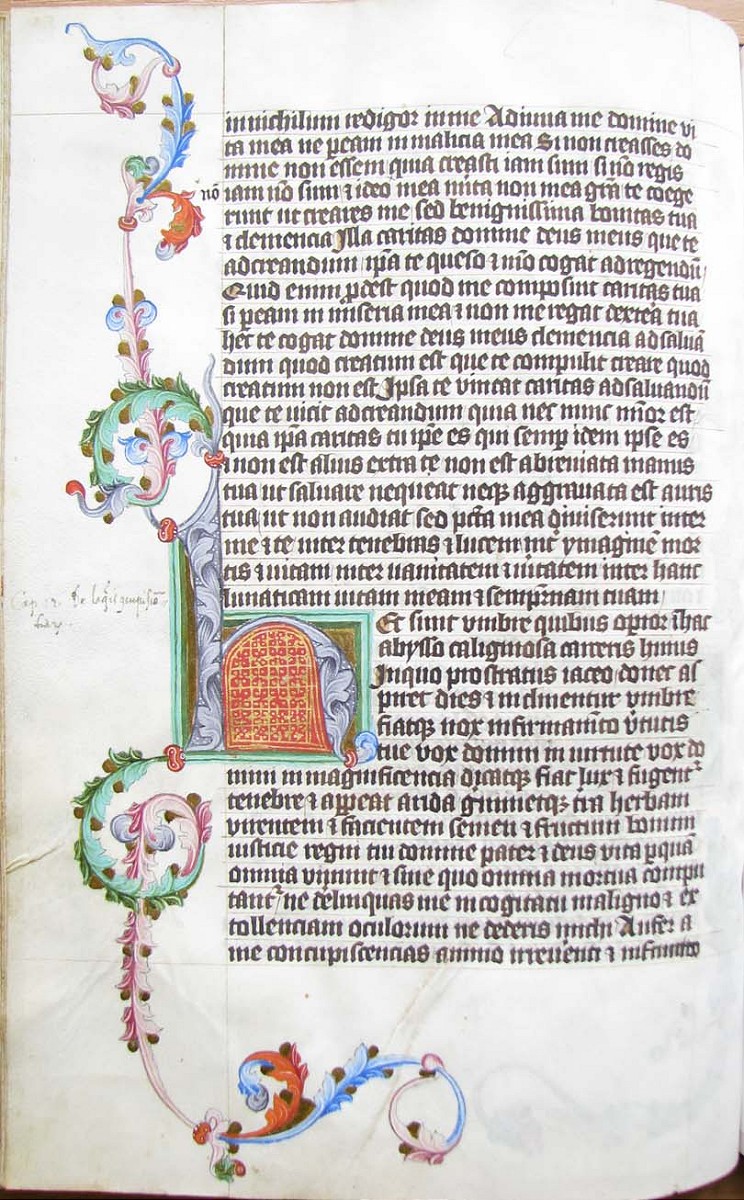 in nichilum redigor in me Adiuua me domine vi
ta mea ne peam in malicia mea Si non creasses do
mine non essem quia creasti iam sum si nō regis
nō iam nō sum ⁊ ideo mea mīta non mea grā te coege
runt ut creares me sed benignissima bonitas tua
⁊ clemencia Illa caritas domine deus meus que te
ad creandum ipā te queso ⁊ nūc cogat ad regendū
Quid enim pdest quod me composuit caritas tua
si peam in miseria mea ⁊ non me regat dextera tua
hec te cogat domine deus meus clemencia ad saluā
dum quod creatum est que te compulit creare quod
creatum non est Ipsa te vincat caritas ad saluandū
que te uicit ad creandum quia nec nunc mīor est
quia ipā caritas tu ipē es qui semp idem ipse es
⁊ non est alius extra te non est abreuiata manus
tua ut saluare nequeat neqꝫ aggrauata est auris
tua ut non audiat sed pctā mea diuiserunt inter
me ⁊ te inter tenebras ⁊ lucem int ymaginē mor
tis ⁊ uitam inter uanitatem ⁊ uitatem inter hanc
lunaticam uitam meam ⁊ sempnam tuam
Et sunt vmbre quibus opior ī hac
abysso caliginosa carceris huius
In quo prostratus iaceo donec as
piret dies ⁊ inclinentur vmbre
fiatqꝫ uox in firmamēto v̄tutis
tue vox domini in uirtute vox do
mini in magnificencia dicatqꝫ fiat lux ⁊ fugent
tenebre ⁊ appeat arida gīminetqꝫ tīra herbam
virentem ⁊ facientem semen ⁊ fructum bonum
iusticie regni tui domine pater ⁊ deus vita p quā
omnia viuunt ⁊ sine quo omnia mortua compu
tant ne delinquas me in cogitatu maligno ⁊ ex
tollenciam oculorum ne dederis michi Aufer a
me concupiscencias animo irreuenti ⁊ infrunito